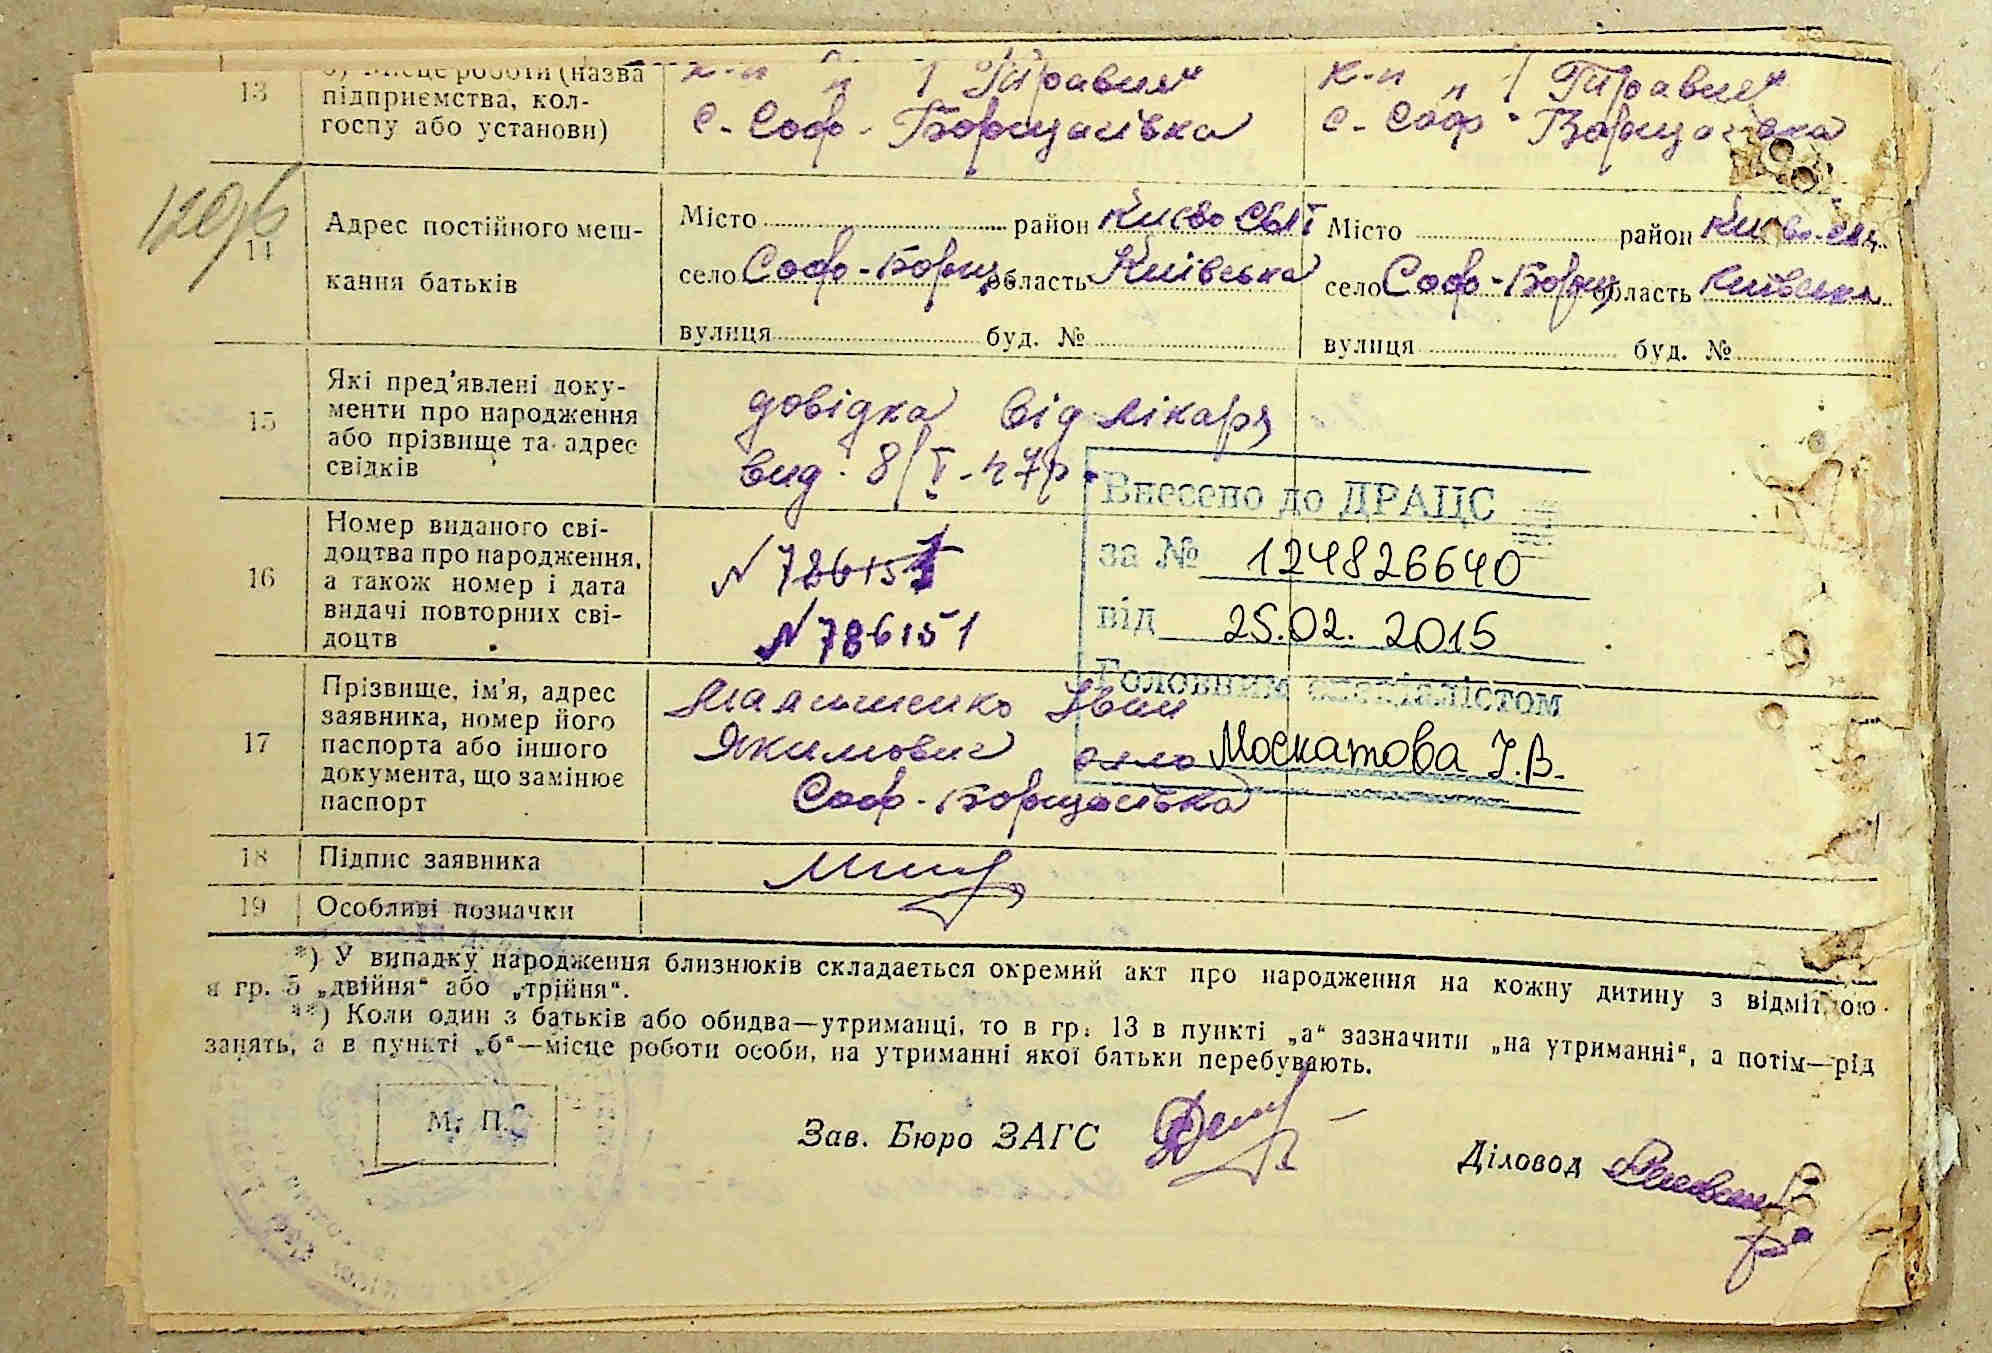 13
б) Місце роботи (назва
підприємства, кол-
госпу або установи)
к-п "1 Травня"
с. Соф-Борщагівка
к-п "1 Травня"
с. Соф-Борщагівка
120
14
Адрес постійного меш-
кання батьків
Місто район Києво Свят
село Соф-Борщ область Київська
вулиця буд. №
Місто район Києво-Свят.
село Соф-Борщ область Київська
вулиця буд. №
15
Які пред'явлені доку-
менти про народження
або прізвище та адрес
свідків
довідка від лікаря
вид. 8/V-47р.
16
Номер виданого сві-
доцтва про народження,
а також номер і дата
видачі повторних сві-
доцтв
N 786151
N 786151
Внесено до ДРАЦС
за № 124826640
від 25.02.2015
Головним спеціалістом
Москатова І.В.
17
Прізвище, ім'я, адрес
заявника, номер його
паспорта або іншого
документа, що замінює
паспорт
Іван
Якимович село
Соф-Борщагівка
18
Підпис заявника
19
Особливі позначки
*) У випадку народження близнюків складається окремий акт про народження на кожну дитину з відміткою
в гр. 5 „двійня“ або „трійня“.
**) Коли один з батьків або обидва—утриманці, то в гр. 13 в пункті „а“ зазначити „на утриманні“, а потім—рід
занять, а в пункті „б“—місце роботи особи, на утриманні якої батьки перебувають.
М. П.
Зав. Бюро ЗАГС
Діловод